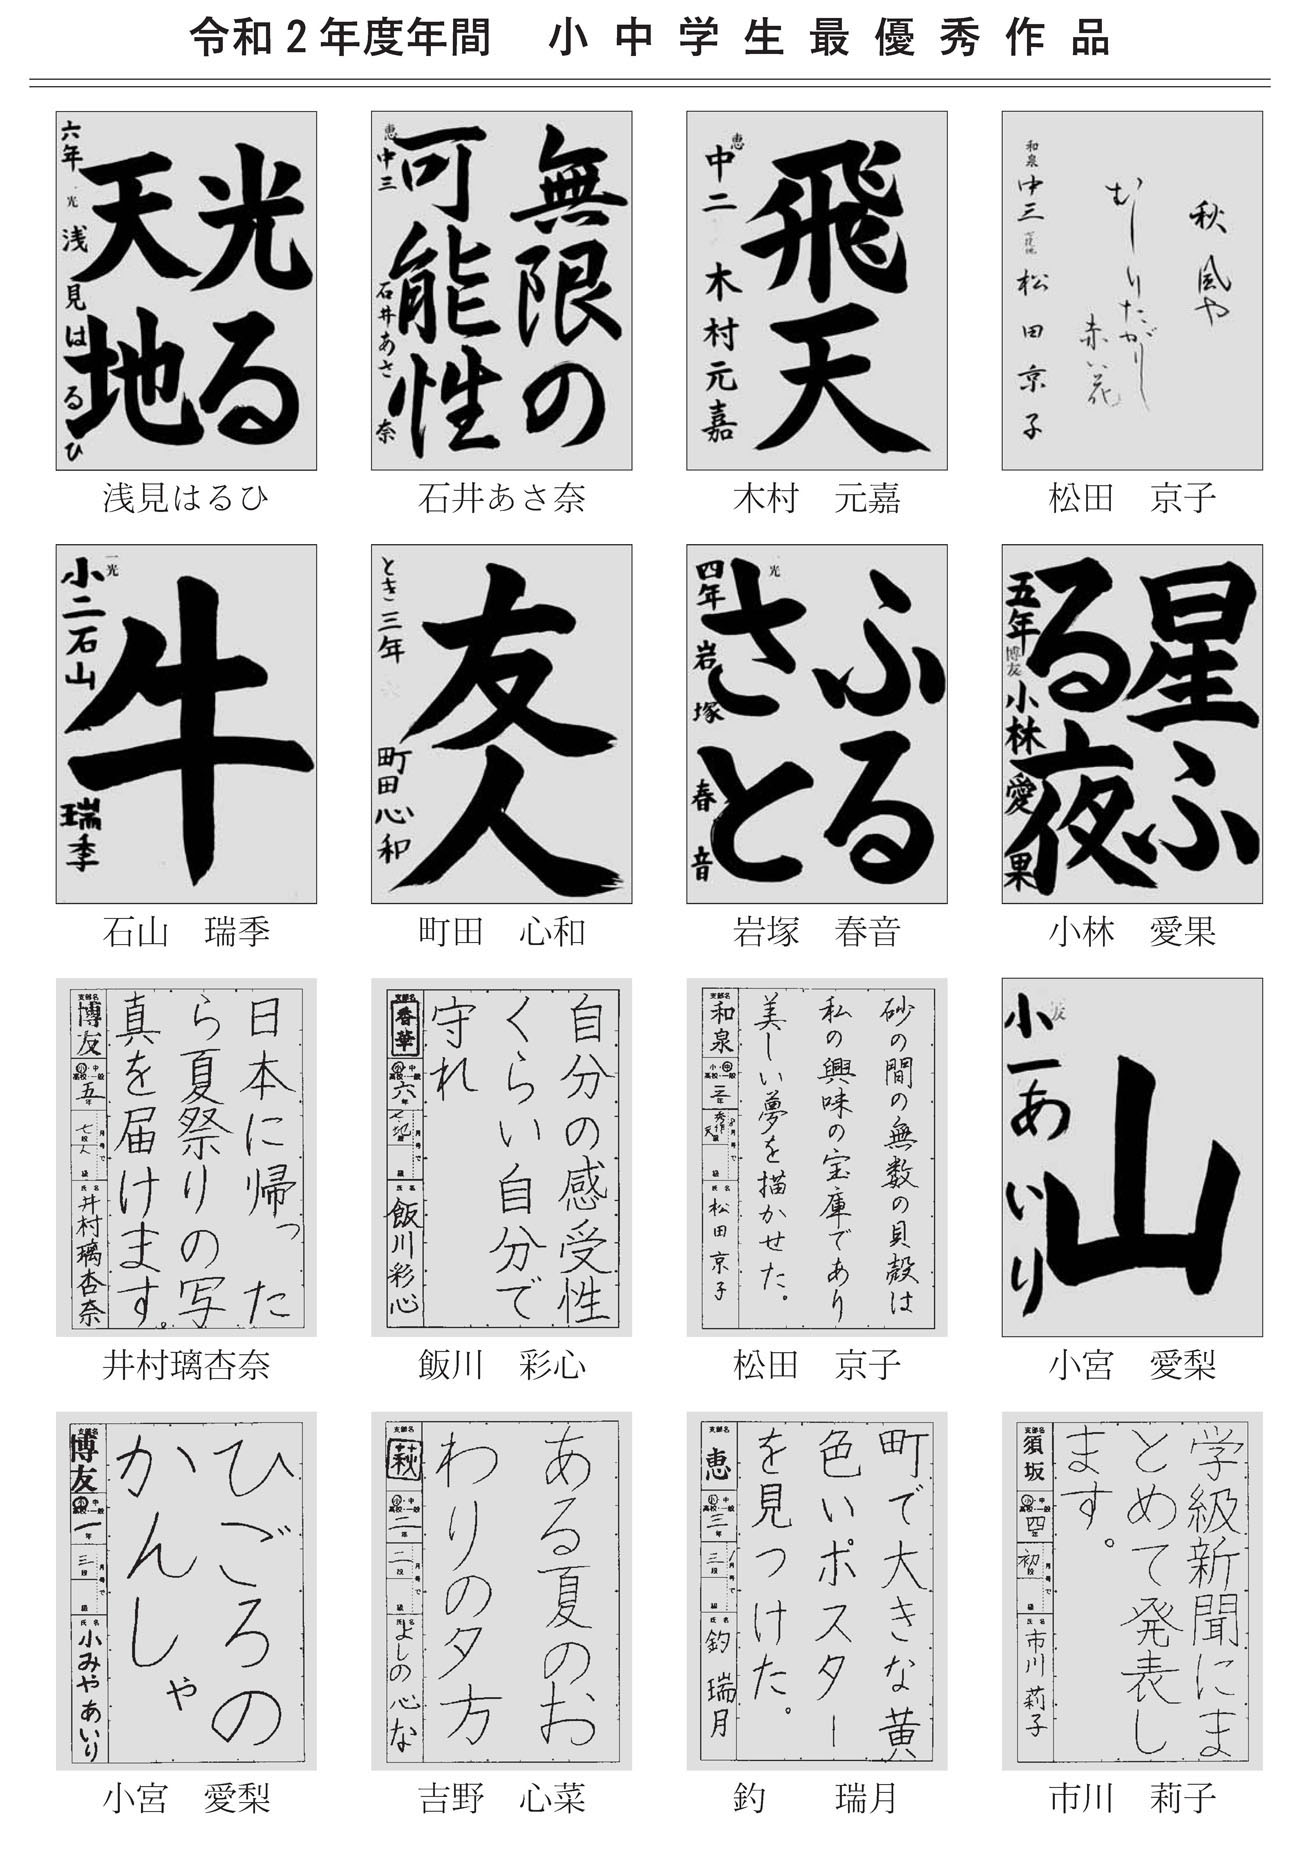 令和2年度年間　小中学生最優秀作品
光る
天地
六年 光 浅見はるひ
浅見はるひ
無限の
可能性
恵 中三 石井あさ奈
石井あさ奈
飛天
恵 中二 木村元嘉
木村　元嘉
秋風や
むしりたがりし
赤い花
和泉 中三 松田京子
松田　京子
牛
一光
小二石山瑞季
石山　瑞季
友人
とき三年 町田心和
町田　心和
ふる
さと
光
四年 岩塚春音
岩塚　春音
星ふ
る夜
五年 博友 小林愛果
小林　愛果
日本に帰った
ら夏祭りの写
真を届けます。
支部名 博友
小・中
高校・一般
五年
七段
月号で
級
氏名 井村璃杏奈
井村璃杏奈
自分の感受性
くらい自分で
守れ
支部名 香華
小・中
高校・一般
六年
月号で
級
氏名 飯川彩心
飯川　彩心
砂の間の無数の貝殻は
私の興味の宝庫であり
美しい夢を描かせた。
支部名 和泉
小・中
高校・一般
三年
月号で
級
氏名 松田京子
松田　京子
山
友
小一あいり
小宮　愛梨
ひごろの
かんしゃ
支部名 博友
小・中
高校・一般
一年
三段
月号で
級
氏名 小みやあいり
小宮　愛梨
ある夏のお
わりの夕方
支部名 萩
小・中
高校・一般
二年
二段
月号で
級
氏名 よしの心な
吉野　心菜
町で大きな黄
色いポスター
を見つけた。
支部名 恵
小・中
高校・一般
三年
三段
月号で
級
氏名 釣瑞月
釣　瑞月
学級新聞にま
とめて発表し
ます。
支部名 須坂
小・中
高校・一般
四年
初段
月号で
級
氏名 市川莉子
市川　莉子